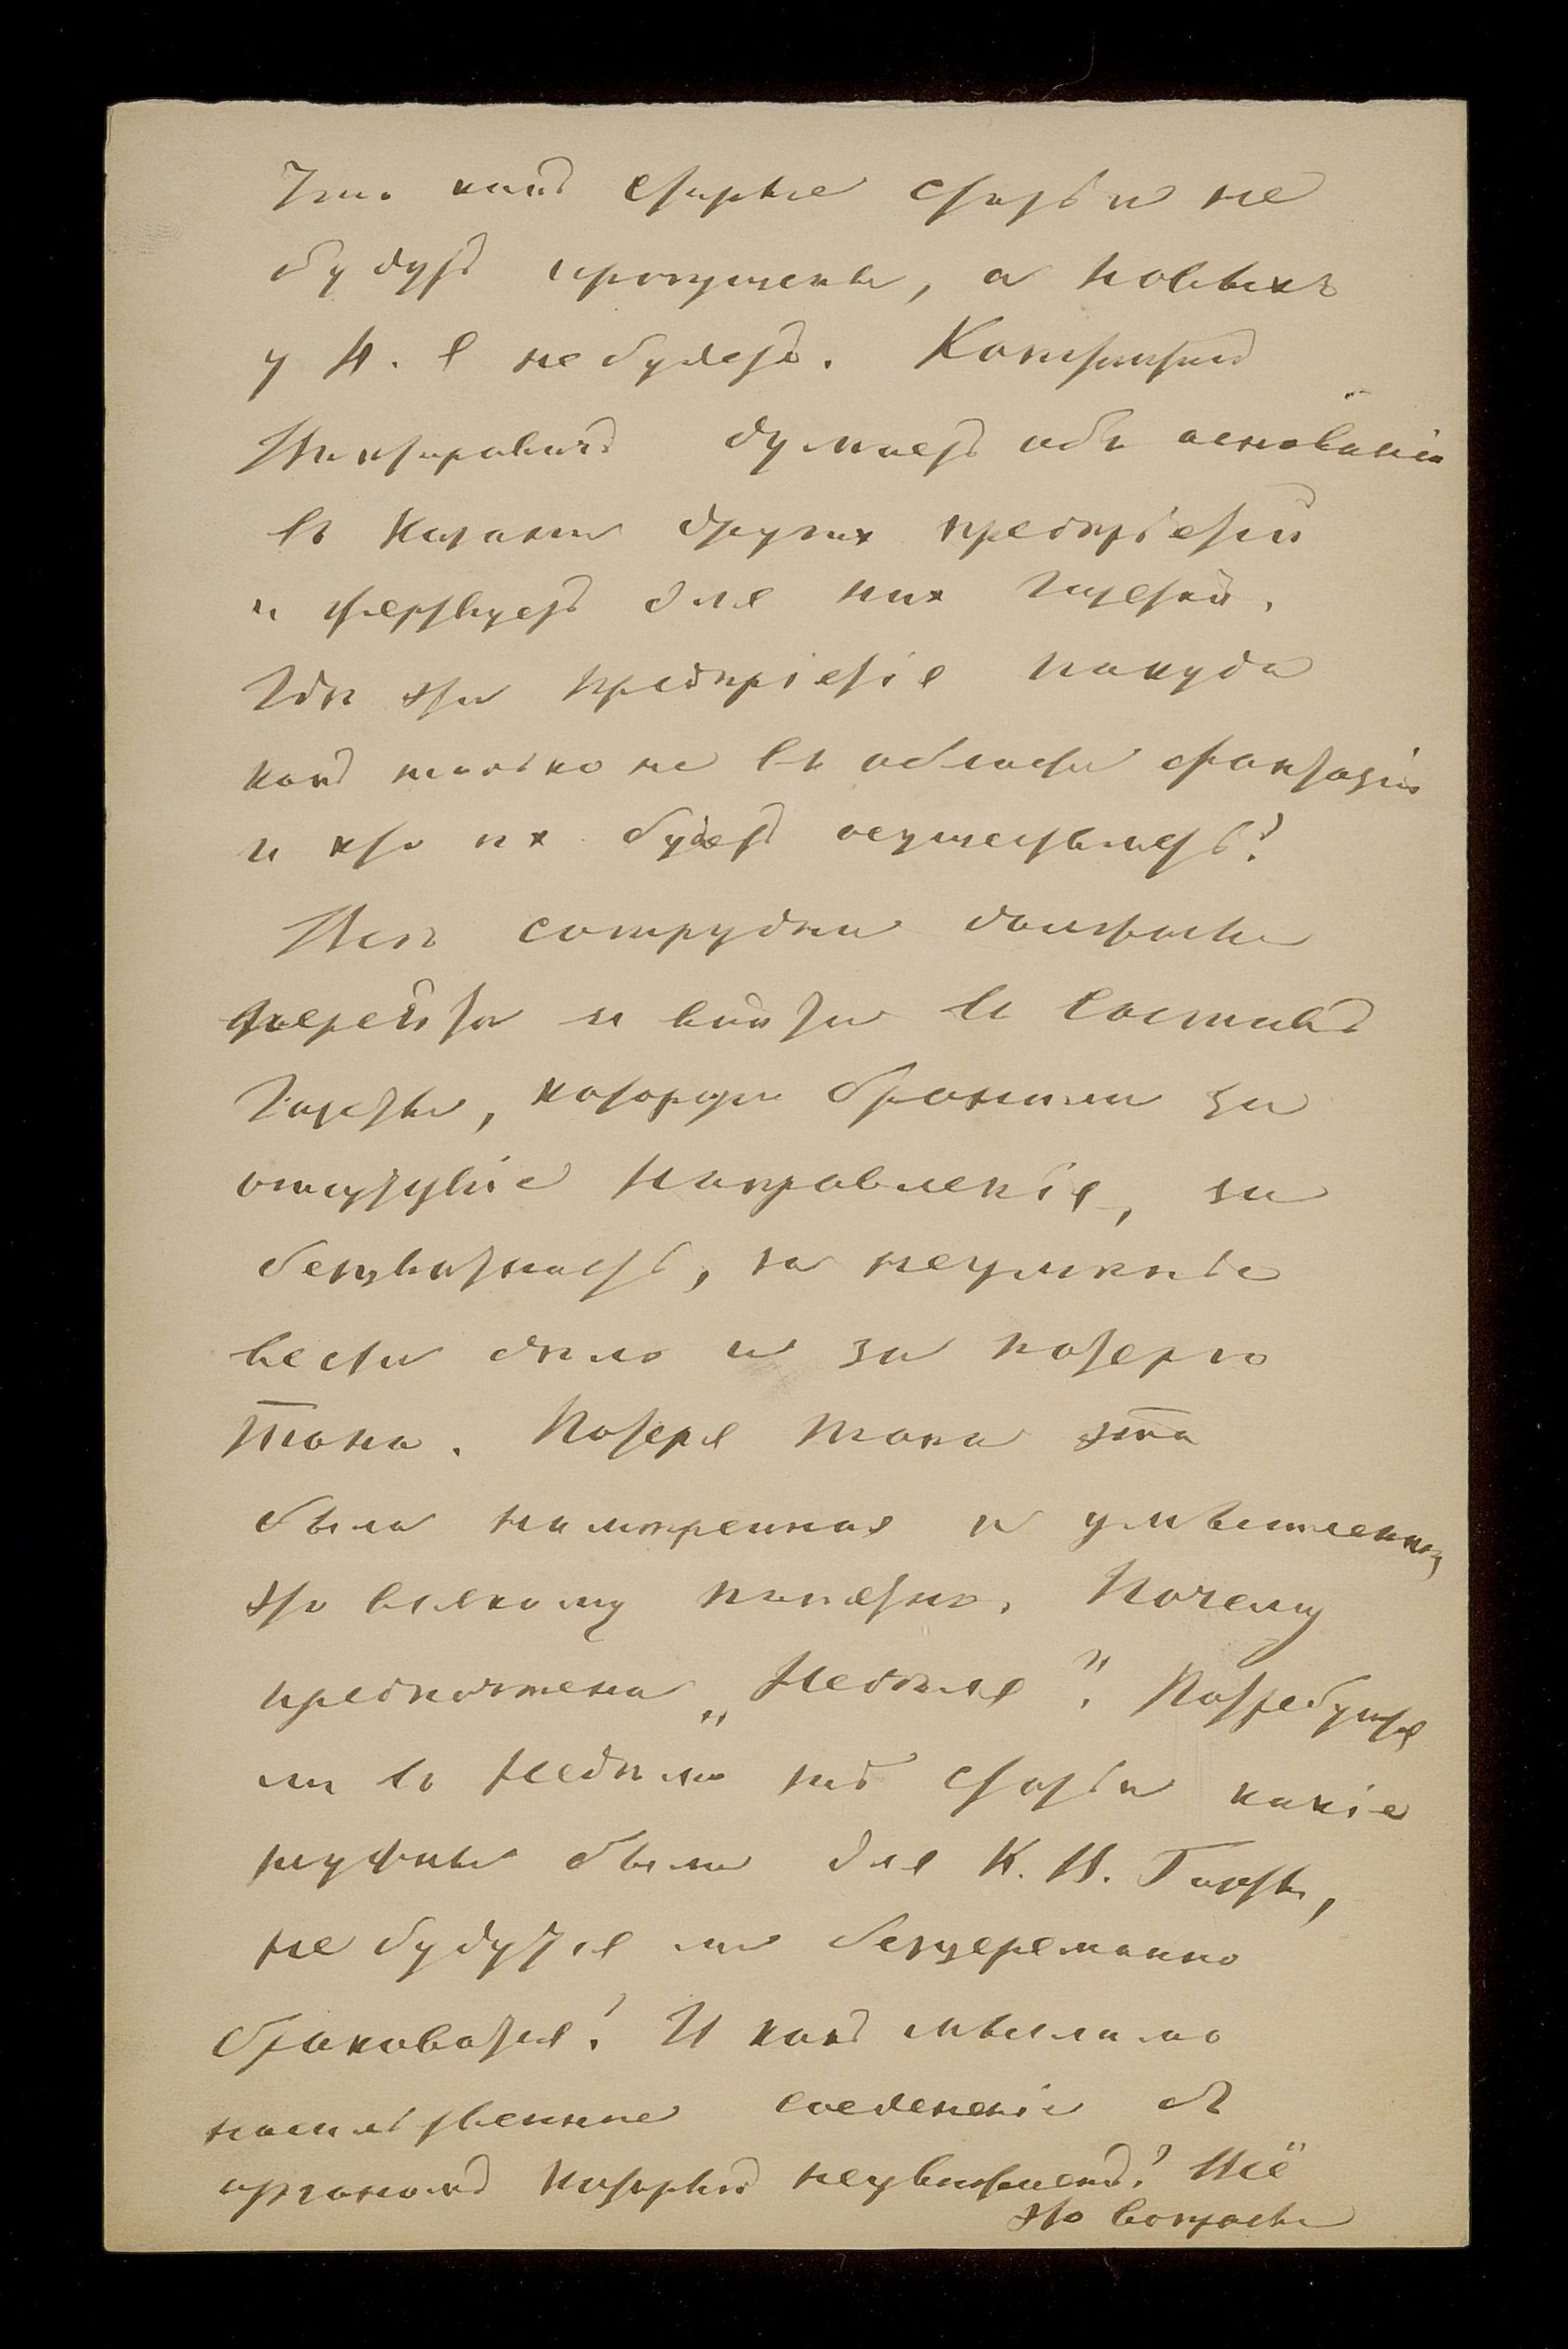 Такъ какъ старые статьи не
будутъ пропущены, а новыхъ
у Н. Я не будетъ. Кониратъ
Викторовичъ думаетъ объ основаніи
въ Казани другихъ предпріятій
и жертвуетъ для них газетой.
Гдѣ эти предпріятія покуда
какъ только не въ области фантазіи
и кто их будетъ осуществлять?
Всѣ сотрудники должны
перейти и войти въ составъ
Газеты, которую бранили за
отсутствіе направленія, за
безцвѣтность, за неуменье
вести дѣло и за потерю
тона. Потеря тона эта
была намѣренная и умышленная,
это всякому понятно. Почему
предпочтена „Недѣля". Потребуются
ли въ Недѣлю тѣ статьи какіе
нужны были для К. В. Газеты,
не будутъ ли безцеремонно
браковаться? И какъ мыслимо
насильственное соединеніе съ
органомъ который неуважаемъ? Всё
это вопросы